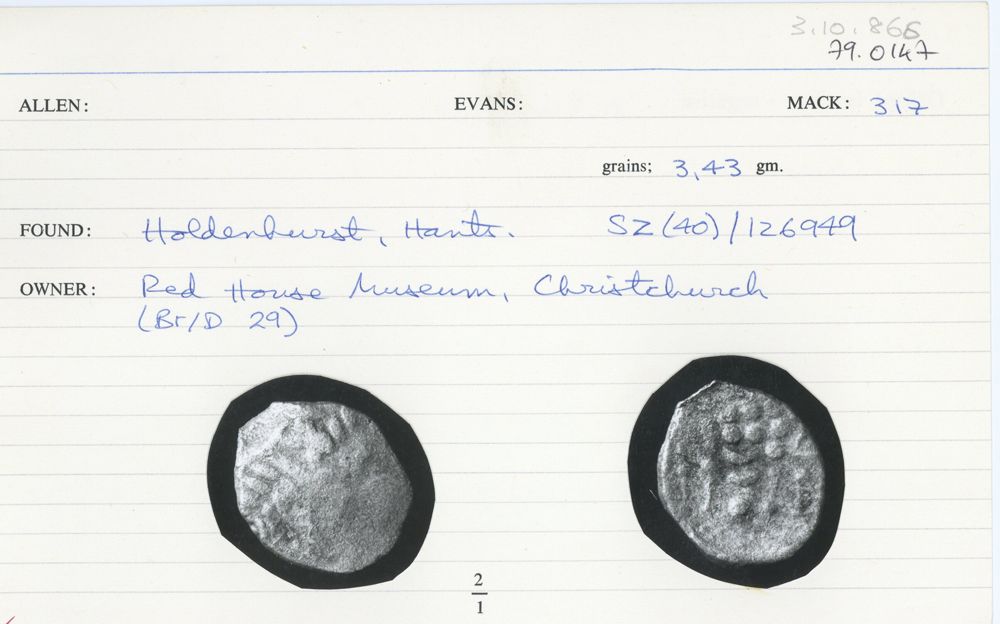 3.10.866
79.0147
ALLEN: EVANS: MACK: 317
grains; 3,43 gm.
FOUND: Holdenhurst, Hants. SZ(40)/126949
OWNER: Red House Museum, Christchurch
(Br/D 29)
2
1